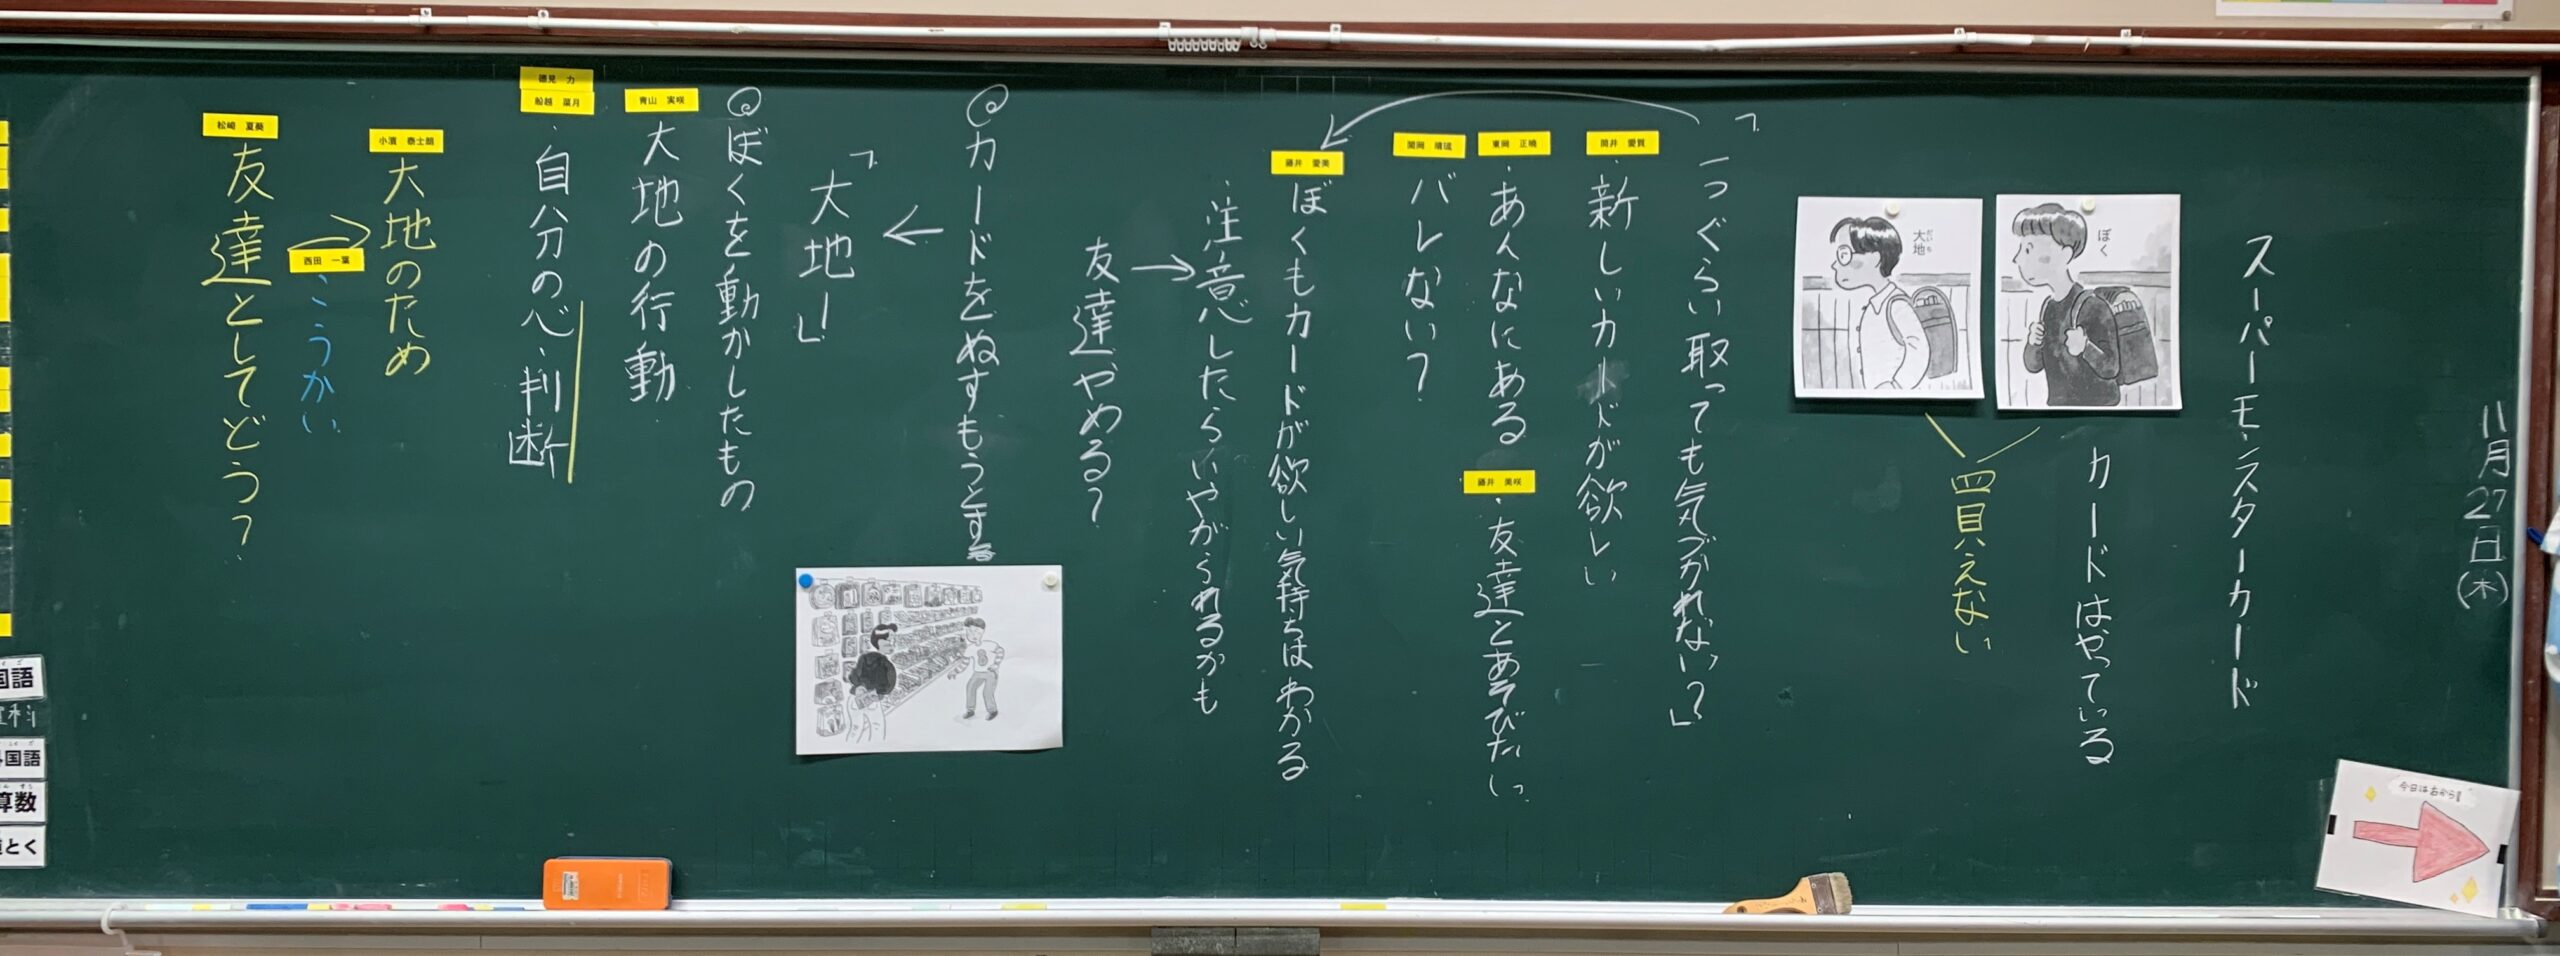 11月27日(木)
スーパーモンスターカード
ぼく
カードはやっている
大地
だいち
買えない
「一つぐらい取っても気づかれないっ?」
筒井 愛賀
・新しいカードが欲しい
東岡 正暁
・あんなにある
藤井 美咲
・友達とあそびたいっ
バレない?
藤井 愛美
ぼくもカードが欲しい気持ちはわかる
・注意したらいやがられるかも
友達やめる?
カードをぬすもうとする
「大地!」
ぼくを動かしたもの
青山 実咲
大地の行動
徳見 力
船越 菜月
・自分の心・判断
小濵 泰士朗
大地のため
西田 一葉
こうかい
松崎 夏葵
友達としてどう?
今日は右から!
国語
外国語
算数
道とく